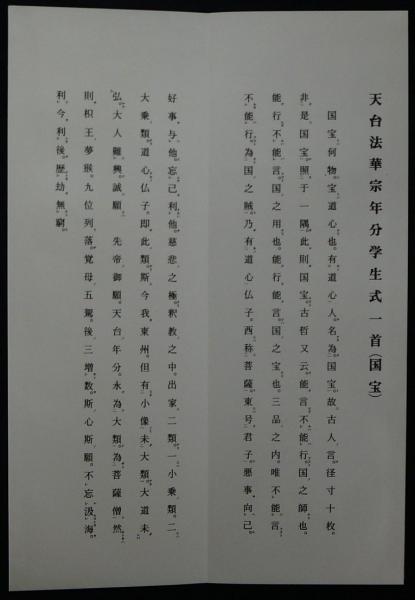 天台法華宗年分学生式一首（国宝）
国宝何物宝道心也。有道心人名為国宝。故古人言。径寸十枚。
非是国宝。照于一隅。此則国宝。古哲又云。能言不能行国之師也。
能行不能言国之用也。能行能言国之宝也。三品之内。唯不能言
不能行為国之賊。乃有道心仏子。西称菩薩。東号君子。悪事向己。
好事与他。忘己利他。慈悲之極。釈教之中。出家二類。一小乗類。二
大乗類。道心仏子。即此類。斯今我東州。但有小像。未大類。大道未
弘。大人難興。誠願　先帝御願。天台年分。永為大類。為菩薩僧。然
則枳王夢猴。九位列落。覚母五駕。後三増数。斯心斯願。不忘汲海。
利今利後。歴劫無窮。